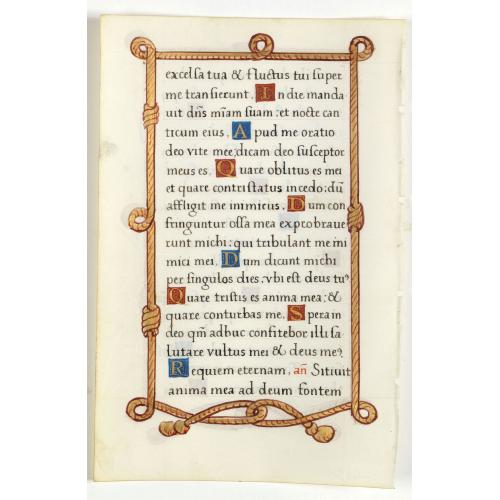 excelſa tua & fluctus tui ſuper
me tranſierunt. In die manda
uit dñs mĩam ſuam: et nocte can
ticum eius. Apud me oratio
deo vite mee: dicam deo ſuſceptor
meus es. Quare oblitus es mei
et quare contriſtatus incedo: dũ
affligit me inimicus. Dum con
fringuntur oſſa mea exprobraue
runt michi: qui tribulant me ini
mici mei. Dum dicunt michi
per ſingulos dies: vbi eſt deus tuꝰ
Quare triſtis es anima mea: &
quare conturbas me. Spera in
deo qm̃ adhuc confitebor illi ſa
lutare vultus mei & deus meꝰ.
Requiem eternam. añ Sitiuit
anima mea ad deum fontem